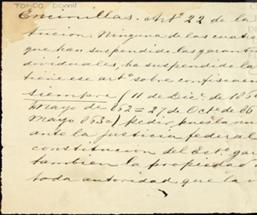 Encinillas. Art.º 22 de la
tucion. Ninguna de las cuatro
que han suspendido las garantias
dividuales, ha suspendido la
tiene ese art.º sobre confiscacion
siempre (11 de Dic.e de 185
Mayo de 62 = 27 de Oct.e de 6
mayo 63
ante la justicia federal
constitucion del Est.º gar
tambien la propiedad
toda autoridad que la